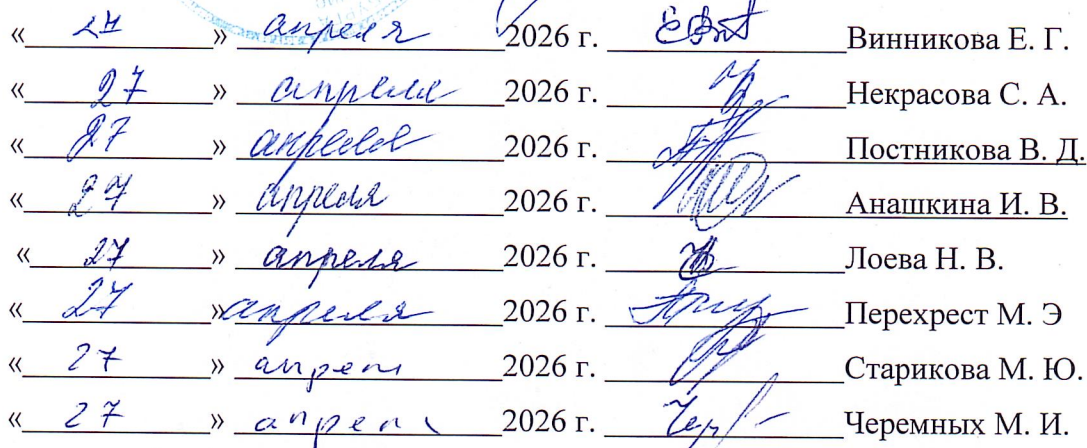 « 27 » апреля 2026 г. Винникова Е. Г.
« 27 » апреля 2026 г. Некрасова С. А.
« 27 » апреля 2026 г. Постникова В. Д.
« 27 » апреля 2026 г. Анашкина И. В.
« 27 » апреля 2026 г. Лоева Н. В.
« 27 » апреля 2026 г. Перехрест М. Э
« 27 » апрель 2026 г. Старикова М. Ю.
« 27 » апрель 2026 г. Черемных М. И.